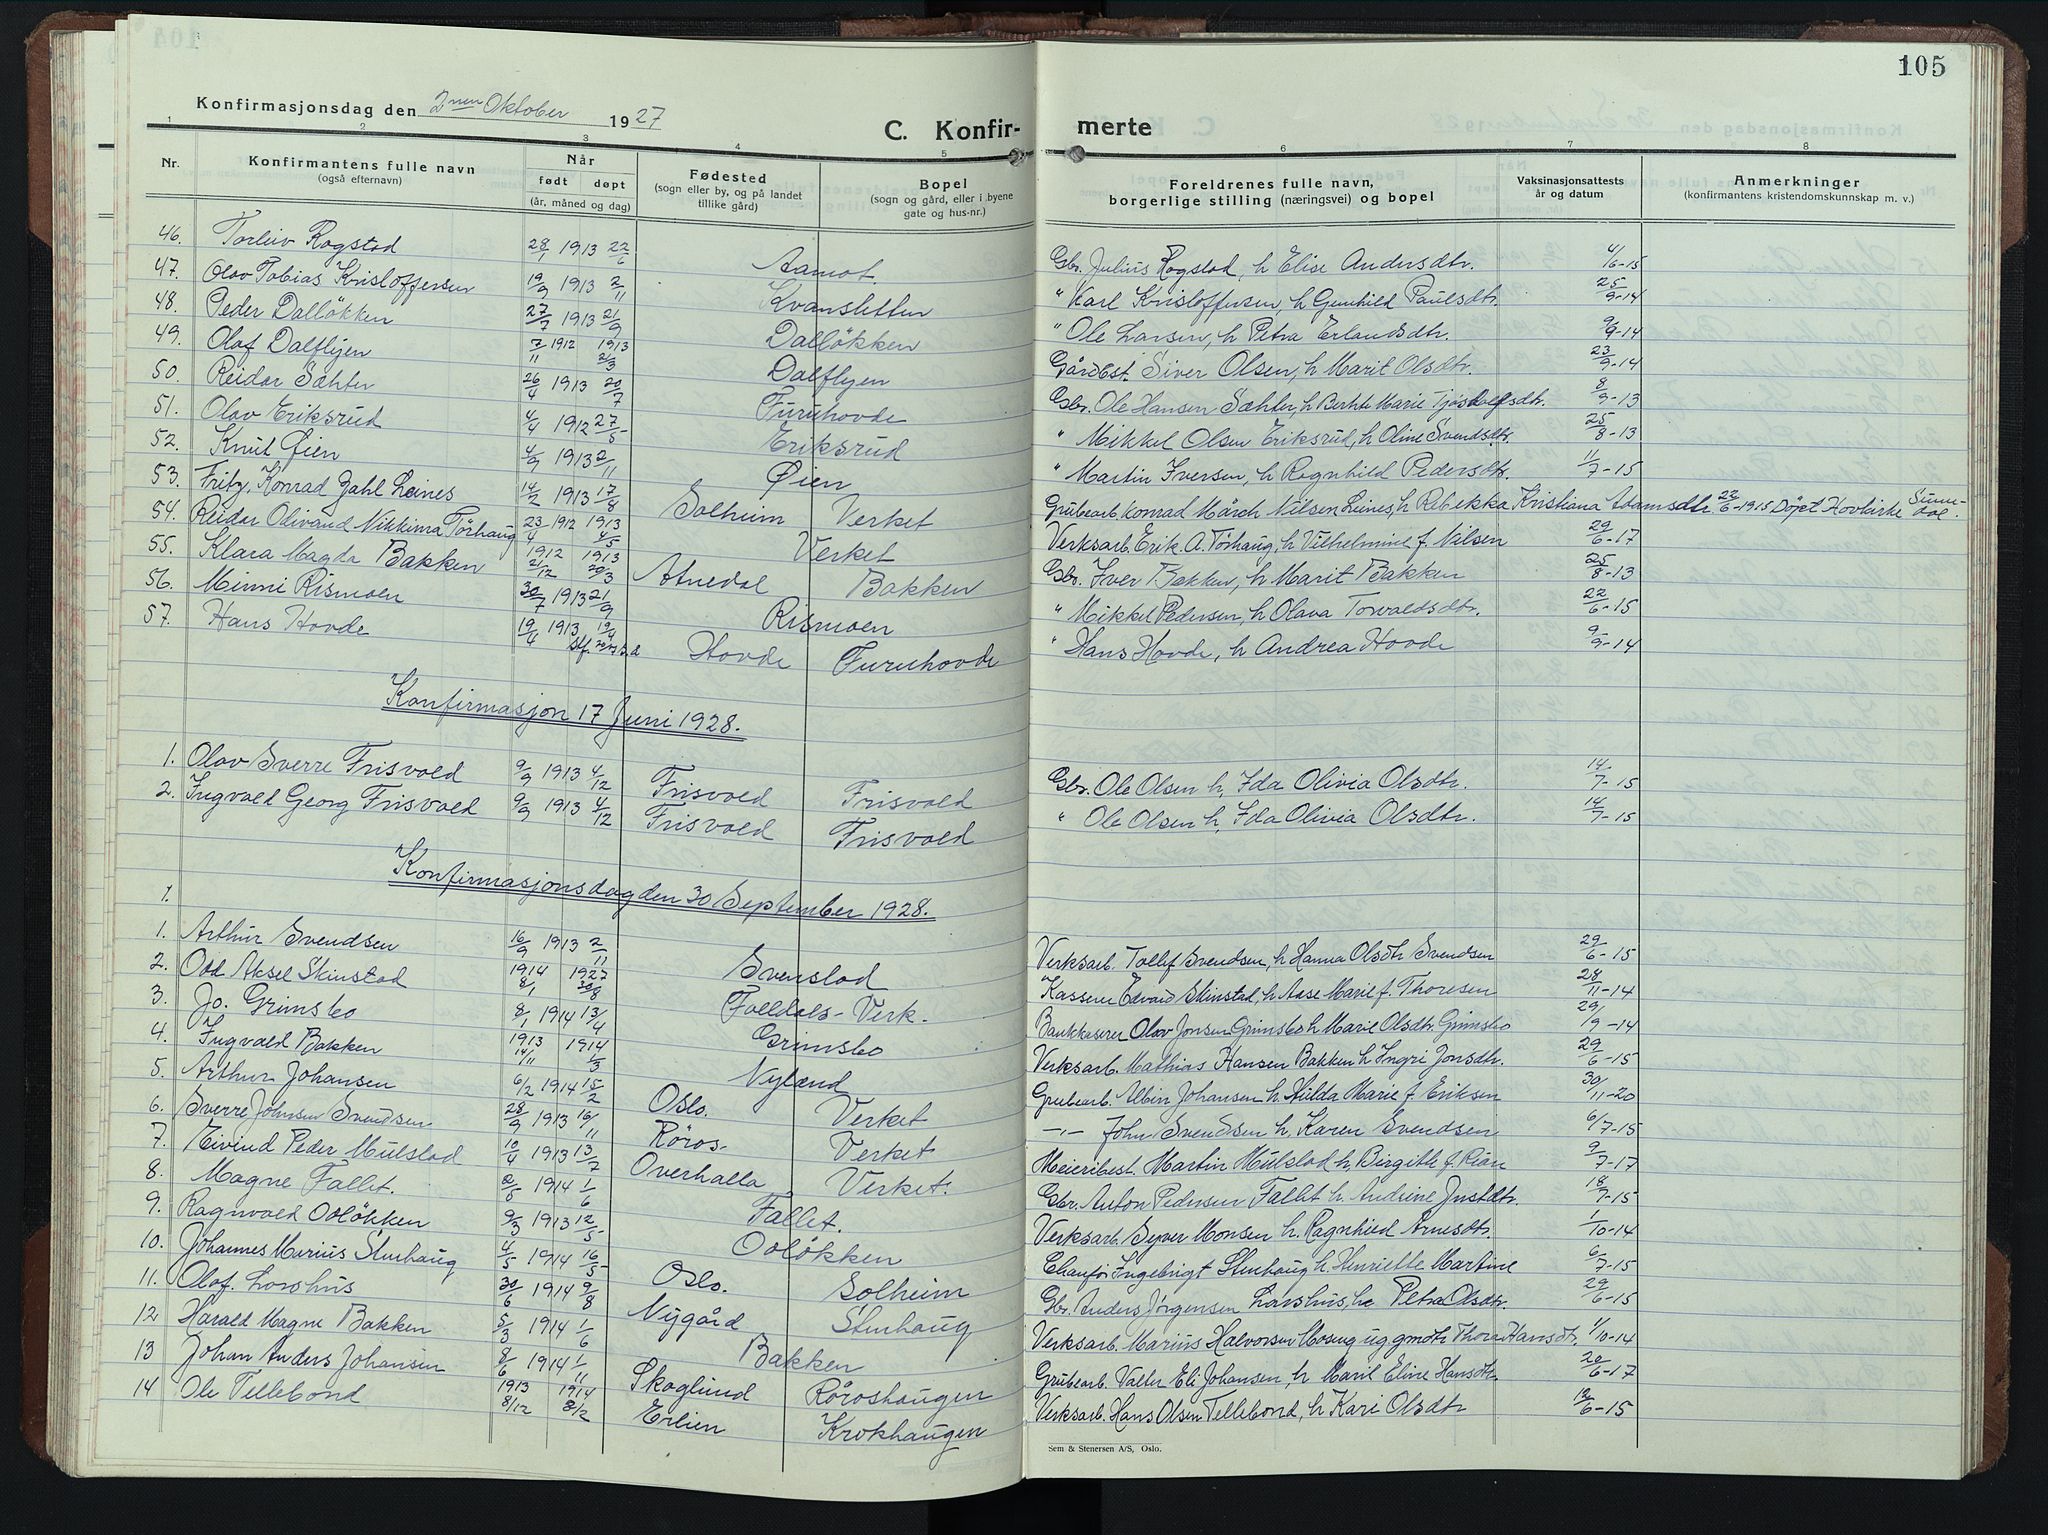 105
Konfirmasjonsdag den 2nen Oktober 1927
C. Konfir- merte
1 2 3 4 5 6 7 8
Nr. Konfirmantens fulle navn (også efternavn) Når født døpt (år, måned og dag) Fødested (sogn eller by, og på landet tillike gård) Bopel (sogn og gård, eller i byene gate og hus-nr.) Foreldrenes fulle navn, borgerlige stilling (næringsvei) og bopel Vaksinasjonsattests år og datum Anmerkninger (konfirmantens kristendomskunnskap m. v.)
46. Torleiv Rogstad 28/1 1913 22/6 Aamot. Gbr. Julius Rogstad, h Elise Andersdtr. 4/6-15
47. Olav Tobias Kristoffersen 19/9 1913 2/11 Kvansletten " Karl Kristoffersen, h Gunhild Paulsdtr. 25/9-14
48. Peder Dalløkken 27/7 1913 21/9 Dalløkken " Ole Larsen, h Petra Erlandsdtr. 9/9-14
49. Olaf Dalflyen 7/11 1912 1913 2/3 Dalflyen Gårdbst. Siver Olsen, h Marit Olsdtr. 23/9-14
50. Reidar Sæhter 26/4 1913 20/7 Furuhovde Gbr. Ole Hansen Sæhter, h Berhte Marie Tjøstolfsdtr. 8/9-13
51. Olav Eriksrud 4/4 1912 27/5 Eriksrud " Mikkel Olsen Eriksrud, h Oline Svendsdtr. 25/8-13
52. Knut Øien 4/9 1913 2/11 Øien " Martin Iversen, h Ragnhild Pedersdtr. 11/7-15
53. Fritz Konrad Zahl Leines 14/2 1913 17/8 Solheim Verket Grubearb. Konrad Mårch Nilsen Leines, h Rebekka Kristiana Adamsdtr. 22/6-1915 Døpt Hovkirke Sunndal.
54. Reidar Olivand Nikkima Tørhaug 23/4 1912 1913 4/5 Verket Verksarb. Erik A. Tørhaug, h Vilhelmine f. Nilsen 29/6-17
55. Klara Magda Bakken 1912 21/12 1913 20/3 Atnedal Bakken Gbr. Iver Bakken, h Marit Bakken 25/8-13
56. Minni Rismoen 30/7 1913 21/9 Rismoen " Mikkel Pedersen, h Olava Torvaldsdtr. 22/6-15
57. Hans Hovde 19/4 1913 19/4 Hovde Furuhovde " Hans Hovde, h Andrea Hovde 9/9-14
Konfirmasjon 17 Juni 1928.
1. Olav Sverre Frisvold 9/9 1913 4/12 Frisvold Frisvold Gbr. Ole Olsen h, Ida Olivia Olsdtr. 14/7-15
2. Ingvald Georg Frisvold 9/9 1913 4/12 Frisvold Frisvold " Ole Olsen h, Ida Olivia Olsdtr. 14/7-15
Konfirmasjonsdag den 30 September 1928.
1.
1. Arthur Svendsen 16/9 1913 2/11 Svenstad Verksarb. Tollef Svendsen, h Hanna Olsdtr Svendsen 29/6-15
2. Odd Aksel Skinstad 1914 8/1 1927 30/8 Folldals-Verk. Kasserer Edvard Skinstad, h Aase Marie f. Thoresen 28/11-14
3. Jo. Grimsbo 8/1 1914 13/4 Grimsbo Bankkaserer Olav Jonsen Grimsbo h Marie Olsdtr. Grimsbo 29/9-14
4. Ingvald Bakken 1913 14/11 1914 1/3 Nyland Verksarb. Mathias Hansen Bakken h Ingri Jonsdtr. 29/6-15
5. Arthur Johansen 6/2 1914 15/2 Oslo. Verket Grubearb. Albin Johansen h. Hilda Marie f Eriksen 30/11-20
6. Sverre Johnsen Svendsen 28/9 1913 16/11 Røros- Verket -"- John Svendsen h, Karen Svendsen 6/7-15
7. Eivind Peder Mulstad 10/4 1913 13/7 Overhalla Verket. Meieribest. Martin Mulstad h, Birgitte f. Rian 9/7-17
8. Magne Fallet. 2/5 1914 1/6 Fallet. Gbr. Anton Pedersen Fallet h Andrine Justdtr. 18/7-15
9. Ragnvald Odløkken 9/3 1913 12/5 Odløkken Verksarb. Syver Monsen h. Ragnhild Arnesdtr. 1/10-14
10. Johannes Marius Stenhaug 4/5 1914 16/5 Oslo. Solheim Chaufør Ingebrigt Stenhaug h. Henriette Martine 6/7-15
11. Olaf. Lovshus 30/6 1914 9/8 Nygård Stenhaug Gbr. Anders Jørgensen Lovshus, h Petra Olsdtr. 29/6-15
12 Harald Magne Bakken 5/3 1914 1/6 Bakken Verksarb. Marius Halvorsen Moseng ug. gmdtr Thora Hansdtr. 1/10-14
13 Johan Anders Johansen 8/6 1914 1/11 Skoglund Røroshaugen Grubearb. Valter Eli Johansen, h Maril Eline Hansdtr. 20/6-17
14 Ole Tellebond 1913 8/12 1914 8/2 Erlien Krokhaugen Verksarb. Hans Olsen Tellebond, h Kari Olsdtr 12/6-15
Sem & Stenersen A/S, Oslo.